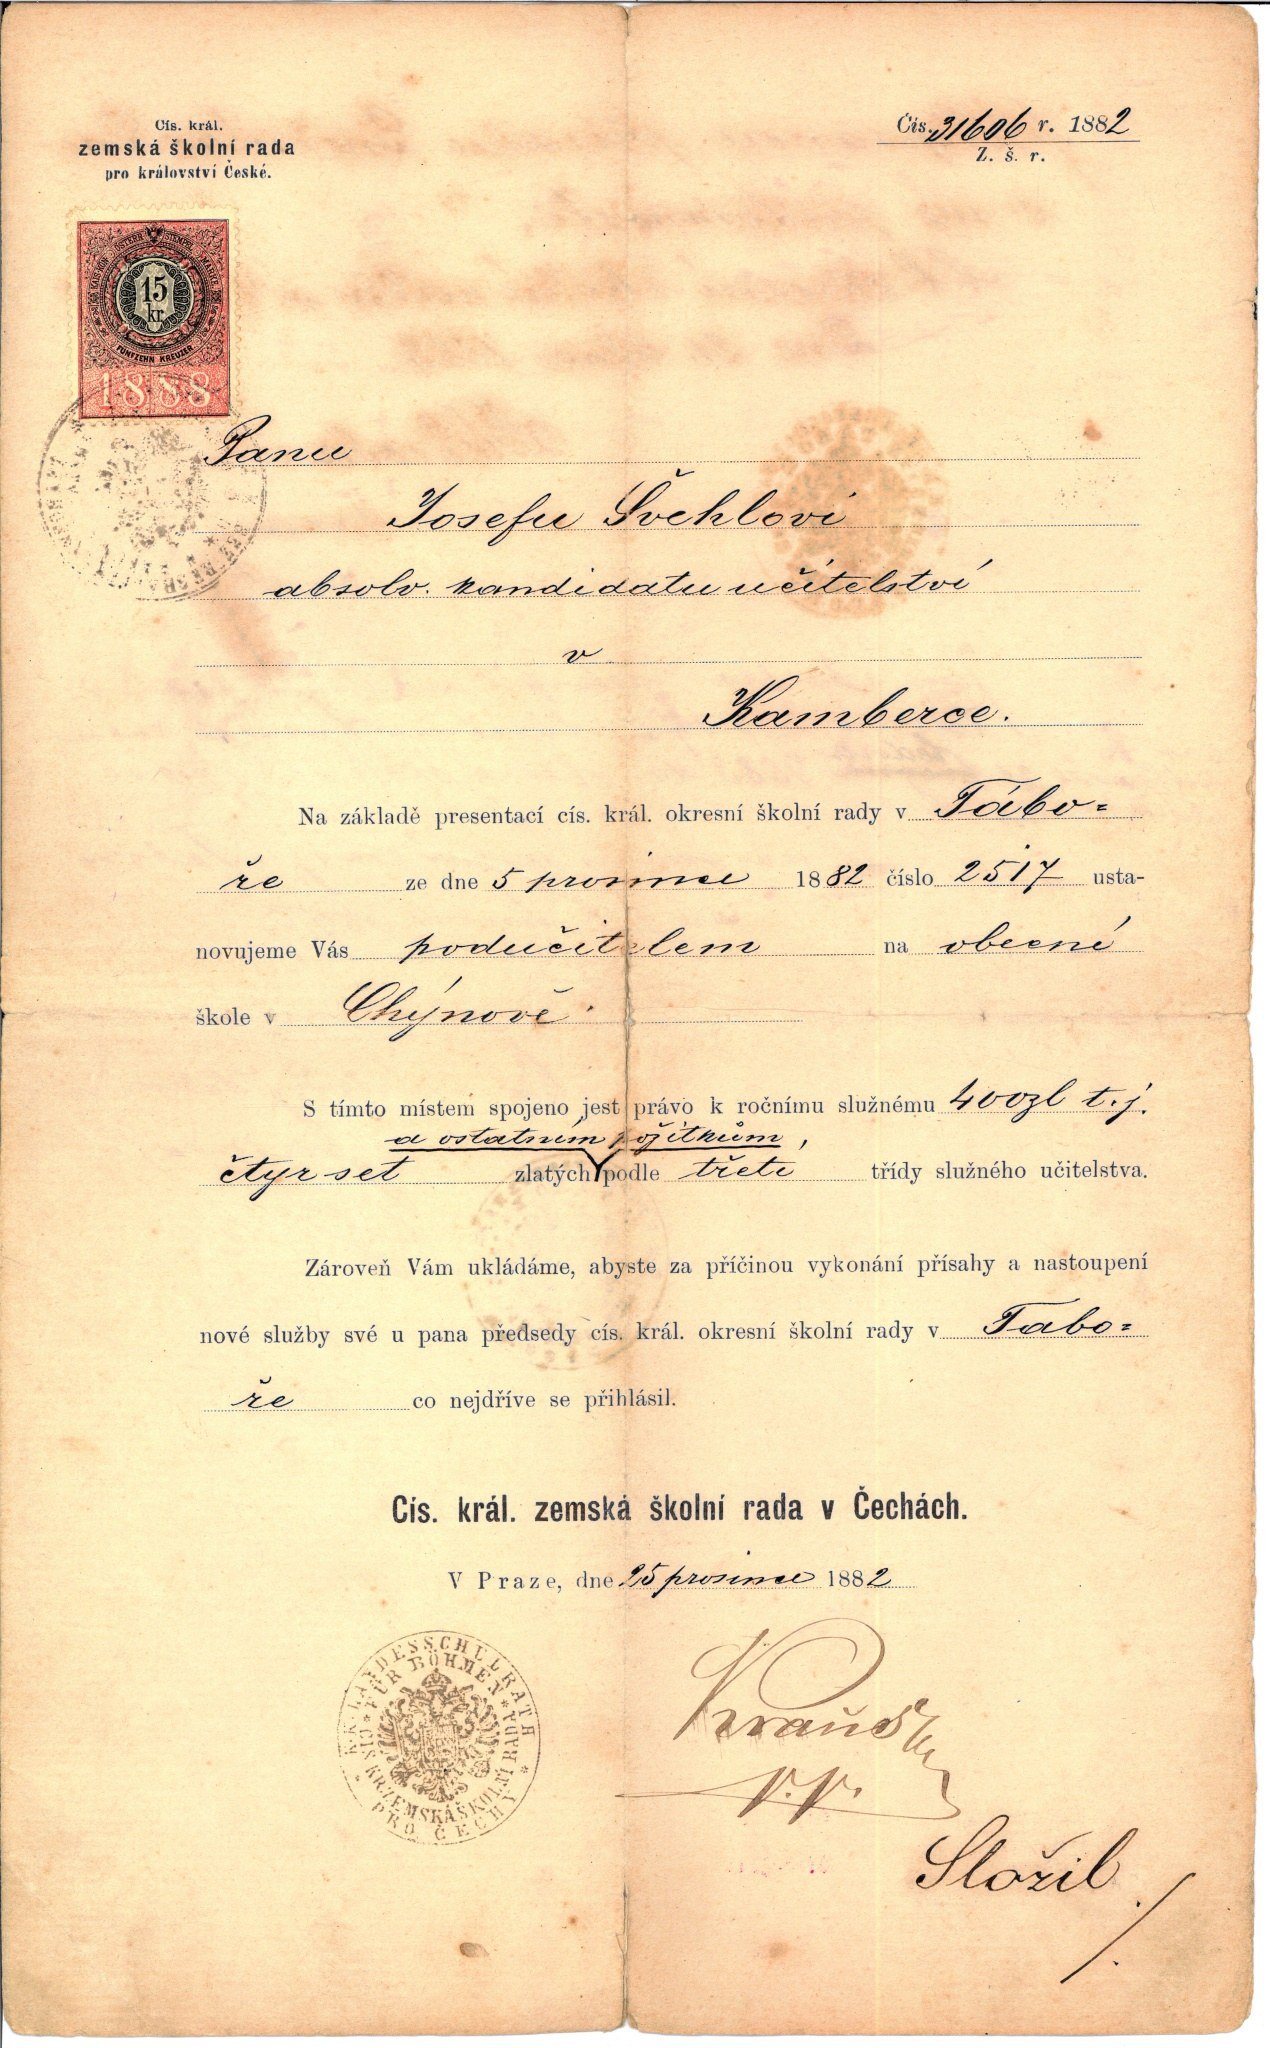 Cís. král.
zemská školní rada
pro království České.
Čís. 31606 r. 1882
Z. š. r.
KAIS. KÖN. ÖSTERR. STEMPEL MARKE
15
kr.
FÜNFZEHN KREUZER
1888
Panu
Josefu Švehlovi
absolv. kandidatu učitelství
v
Kamberce.
Na základě presentací cís. král. okresní školní rady v Tábo=
ře ze dne 5 prosince 1882 číslo 2517 usta-
novujeme Vás podučitelem na obecné
škole v Chýnově.
S tímto místem spojeno jest právo k ročnímu služnému 400zl t.j.
a ostatním požitkům,
čtyr set zlatých podle třetí třídy služného učitelstva.
Zároveň Vám ukládáme, abyste za příčinou vykonání přísahy a nastoupení
nové služby své u pana předsedy cís. král. okresní školní rady v Tabo=
ře co nejdříve se přihlásil.
Cís. král. zemská školní rada v Čechách.
V Praze, dne 25 prosince 1882
K.K. LANDESSCHULRATH
FÜR BÖHMEN
CIS. KR. ZEMSKÁ ŠKOLNÍ RADA
PRO ČECHY
Kraus
Složil